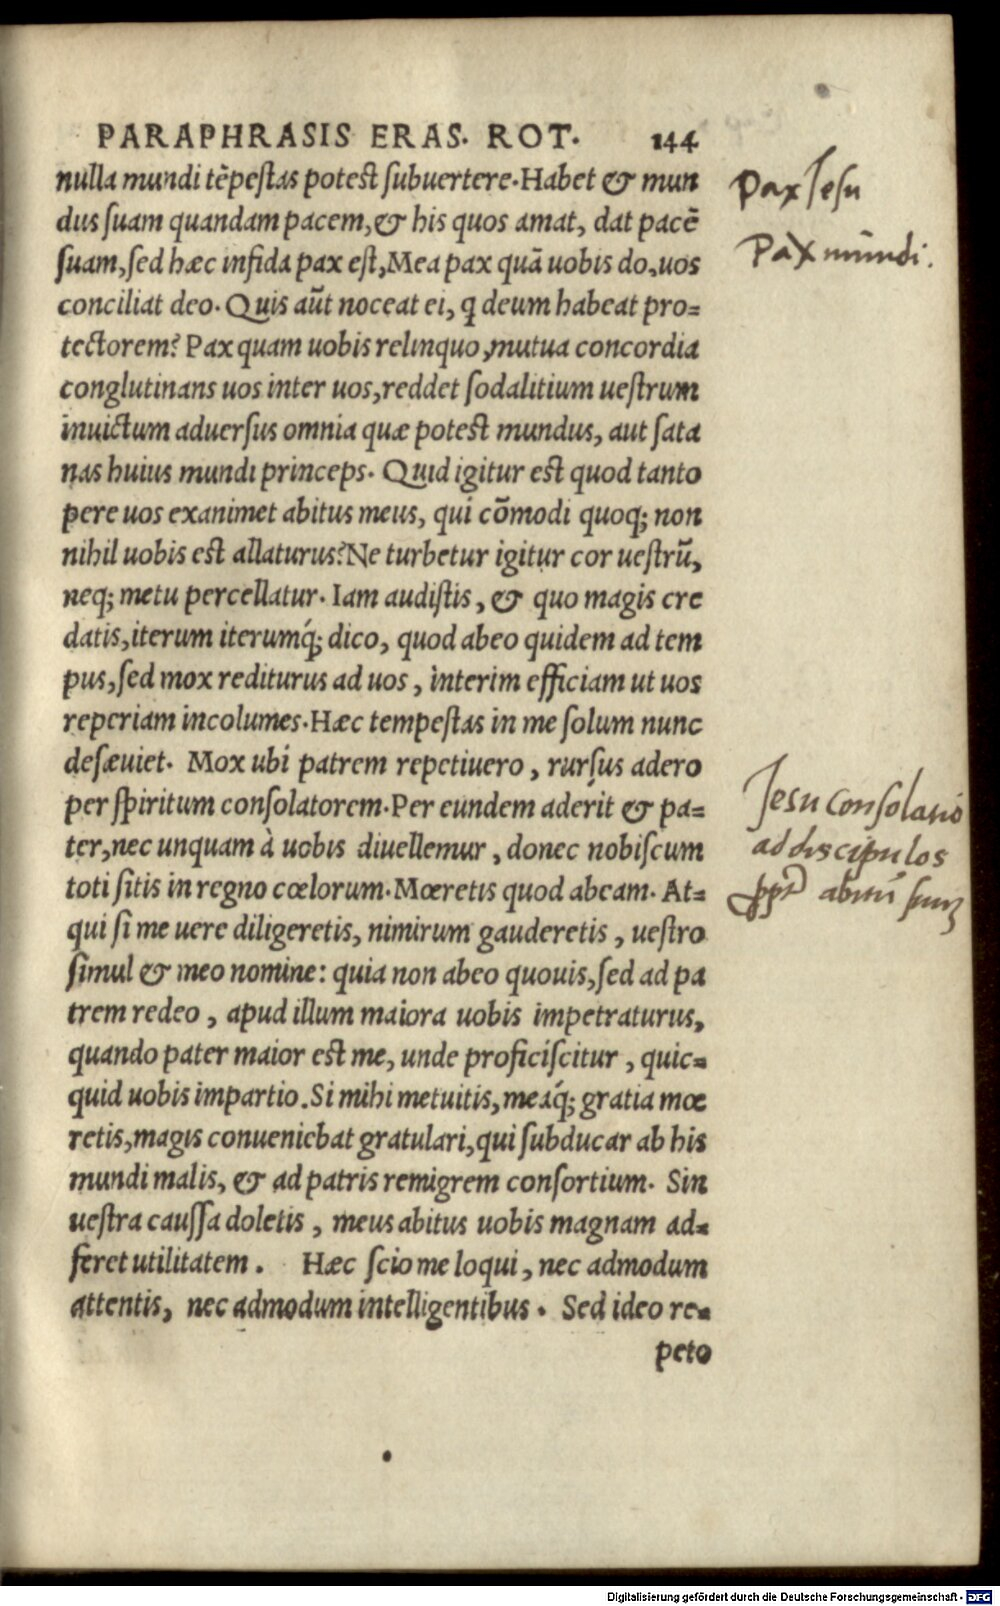 PARAPHRASIS ERAS. ROT. 144
nulla mundi tẽpeſtas poteſt ſubuertere. Habet & mun
dus ſuam quandam pacem, & his quos amat, dat pacẽ
ſuam, ſed hæc infida pax eſt, Mea pax quã uobis do, uos
conciliat deo. Quis aũt noceat ei, q deum habeat pro=
tectorem? Pax quam uobis relinquo, mutua concordia
conglutinans uos inter uos, reddet ſodalitium ueſtrum
inuictum aduerſus omnia quæ poteſt mundus, aut ſata
nas huius mundi princeps. Quid igitur eſt quod tanto
pere uos exanimet abitus meus, qui cõmodi quoq; non
nihil uobis eſt allaturus? Ne turbetur igitur cor ueſtrũ,
neq; metu percellatur. Iam audiſtis, & quo magis cre
datis, iterum iterumq́; dico, quod abeo quidem ad tem
pus, ſed mox rediturus ad uos, interim efficiam ut uos
reperiam incolumes. Hæc tempeſtas in me ſolum nunc
deſæuiet. Mox ubi patrem repetiuero, rurſus adero
per ſpiritum conſolatorem. Per eundem aderit & pa=
ter, nec unquam à uobis diuellemur, donec nobiſcum
toti ſitis in regno cœlorum. Mœretis quod abeam. At=
qui ſi me uere diligeretis, nimirum gauderetis, ueſtro
ſimul & meo nomine: quia non abeo quouis, ſed ad pa
trem redeo, apud illum maiora uobis impetraturus,
quando pater maior eſt me, unde proficiſcitur, quic=
quid uobis impartio. Si mihi metuitis, meaq́; gratia mœ
retis, magis conueniebat gratulari, qui ſubducar ab his
mundi malis, & ad patris remigrem conſortium. Sin
ueſtra cauſſa doletis, meus abitus uobis magnam ad=
feret utilitatem. Hæc ſcio me loqui, nec admodum
attentis, nec admodum intelligentibus. Sed ideo re=
peto
Pax Jeſu
Pax mundi.
Jeſu conſolatio
ad discipulos
abitũ ſuuȝ
Digitalisierung gefördert durch die Deutsche Forschungsgemeinschaft - DFG